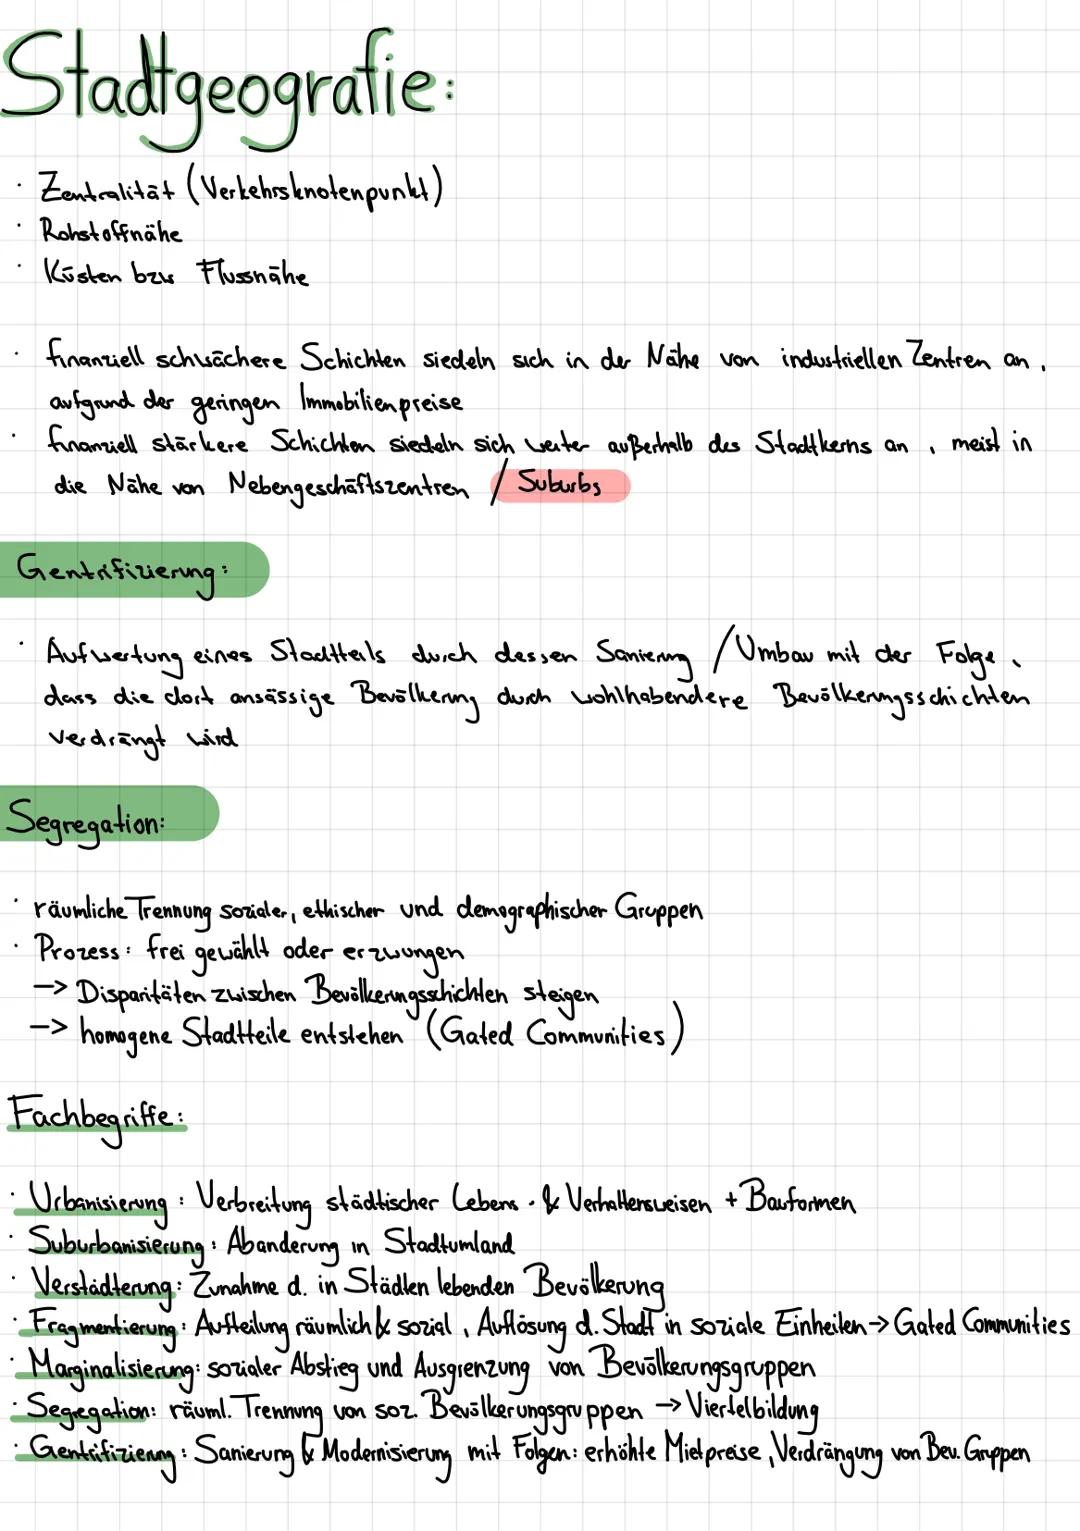 Stadtgeografie:
· Zentralität (Verkehrsknotenpunkt)
· Rohstoffnähe
· Küsten bzw Flussnähe
· finanziell schwächere Schichten siedeln sich in der Nähe von industriellen Zentren an,
aufgrund der geringen Immobilienpreise
· finanziell stärkere Schichten siedeln sich weiter außerhalb des Stadtkerns an, meist in
die Nähe von Nebengeschäftszentren / Suburbs
Gentrifizierung:
· Aufwertung eines Stadtteils durch dessen Sanierung / Umbau mit der Folge,
dass die dort ansässige Bevölkerung durch wohlhabendere Bevölkerungsschichten
verdrängt wird
Segregation:
· räumliche Trennung sozialer, ethischer und demographischer Gruppen
· Prozess: frei gewählt oder erzwungen
-> Disparitäten zwischen Bevölkerungsschichten steigen
-> homogene Stadtteile entstehen (Gated Communities)
Fachbegriffe:
· Urbanisierung: Verbreitung städtischer Lebens- & Verhaltensweisen + Bauformen
· Suburbanisierung: Abanderung in Stadtumland
· Verstädterung: Zunahme d. in Städten lebenden Bevölkerung
· Fragmentierung: Aufteilung räumlich & sozial, Auflösung d. Stadt in soziale Einheiten -> Gated Communities
· Marginalisierung: sozialer Abstieg und Ausgrenzung von Bevölkerungsgruppen
· Segregation: räuml. Trennung von soz. Bevölkerungsgruppen -> Viertelbildung
· Gentrifizierung: Sanierung & Modernisierung mit Folgen: erhöhte Mietpreise, Verdrängung von Bev. Gruppen